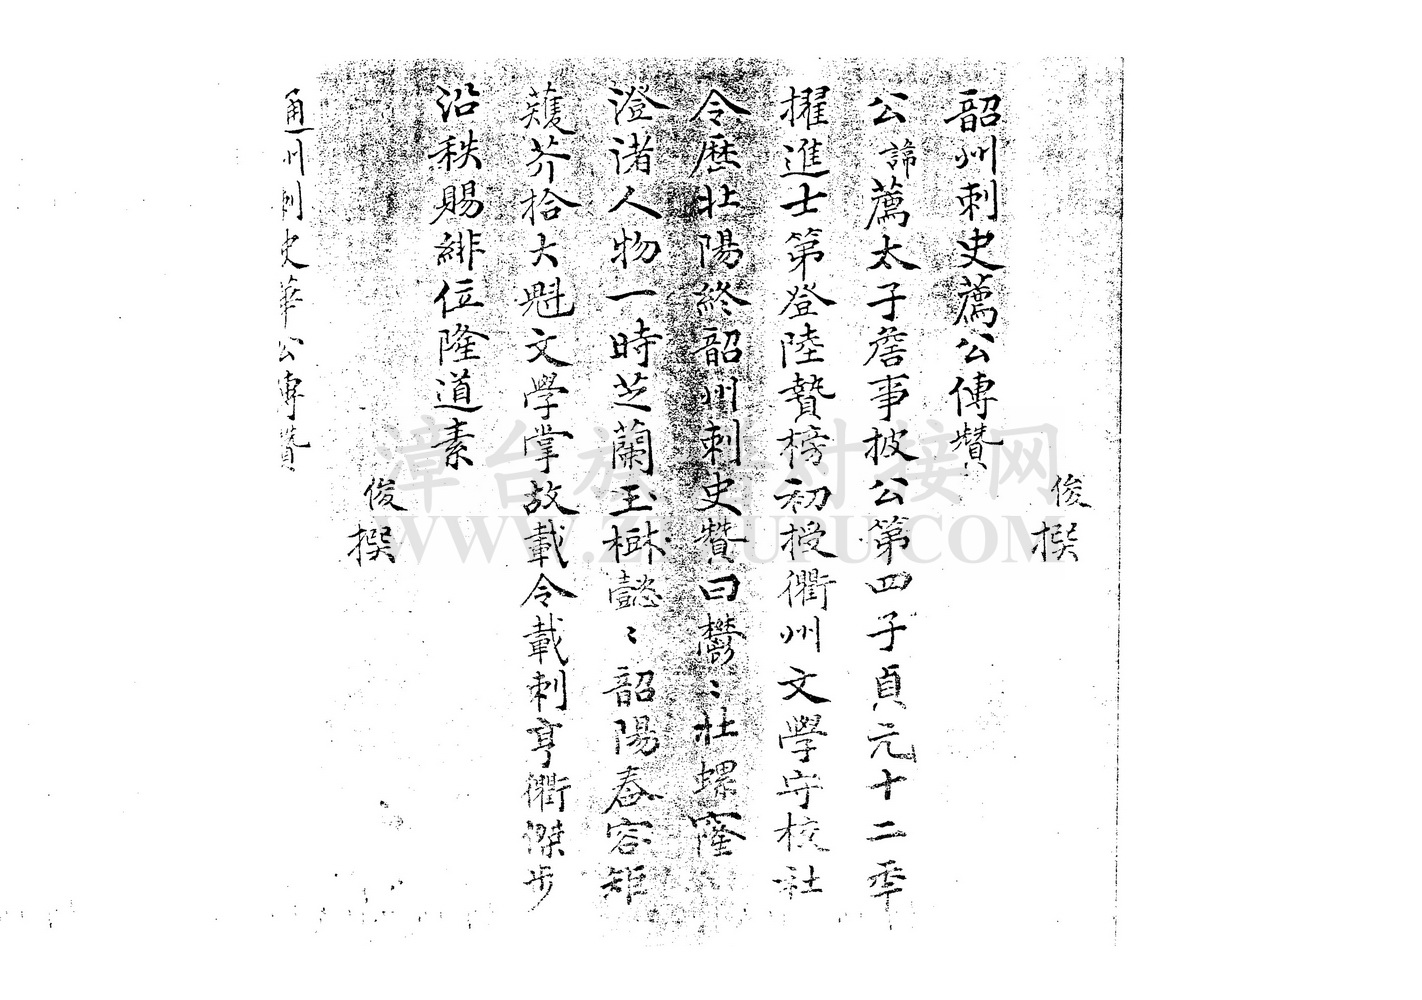 俊撰
韶州刺史薦公傳贊
公諱薦太子詹事披公第四子貞元十二季
擢進士第登陸贄榜初授衢州文學守校社
令歷壯陽終韶州刺史贊曰欝〻壯螺窿
澄渚人物一時芝蘭玉樹懿〻韶陽春容矩
矱芥拾大魁文學掌故載令載刺亨衢傑步
沿秩賜緋位隆道素
俊撰
通州刺史華公傳贊
漳台族譜对接网
WWW.ZTZUPU.COM